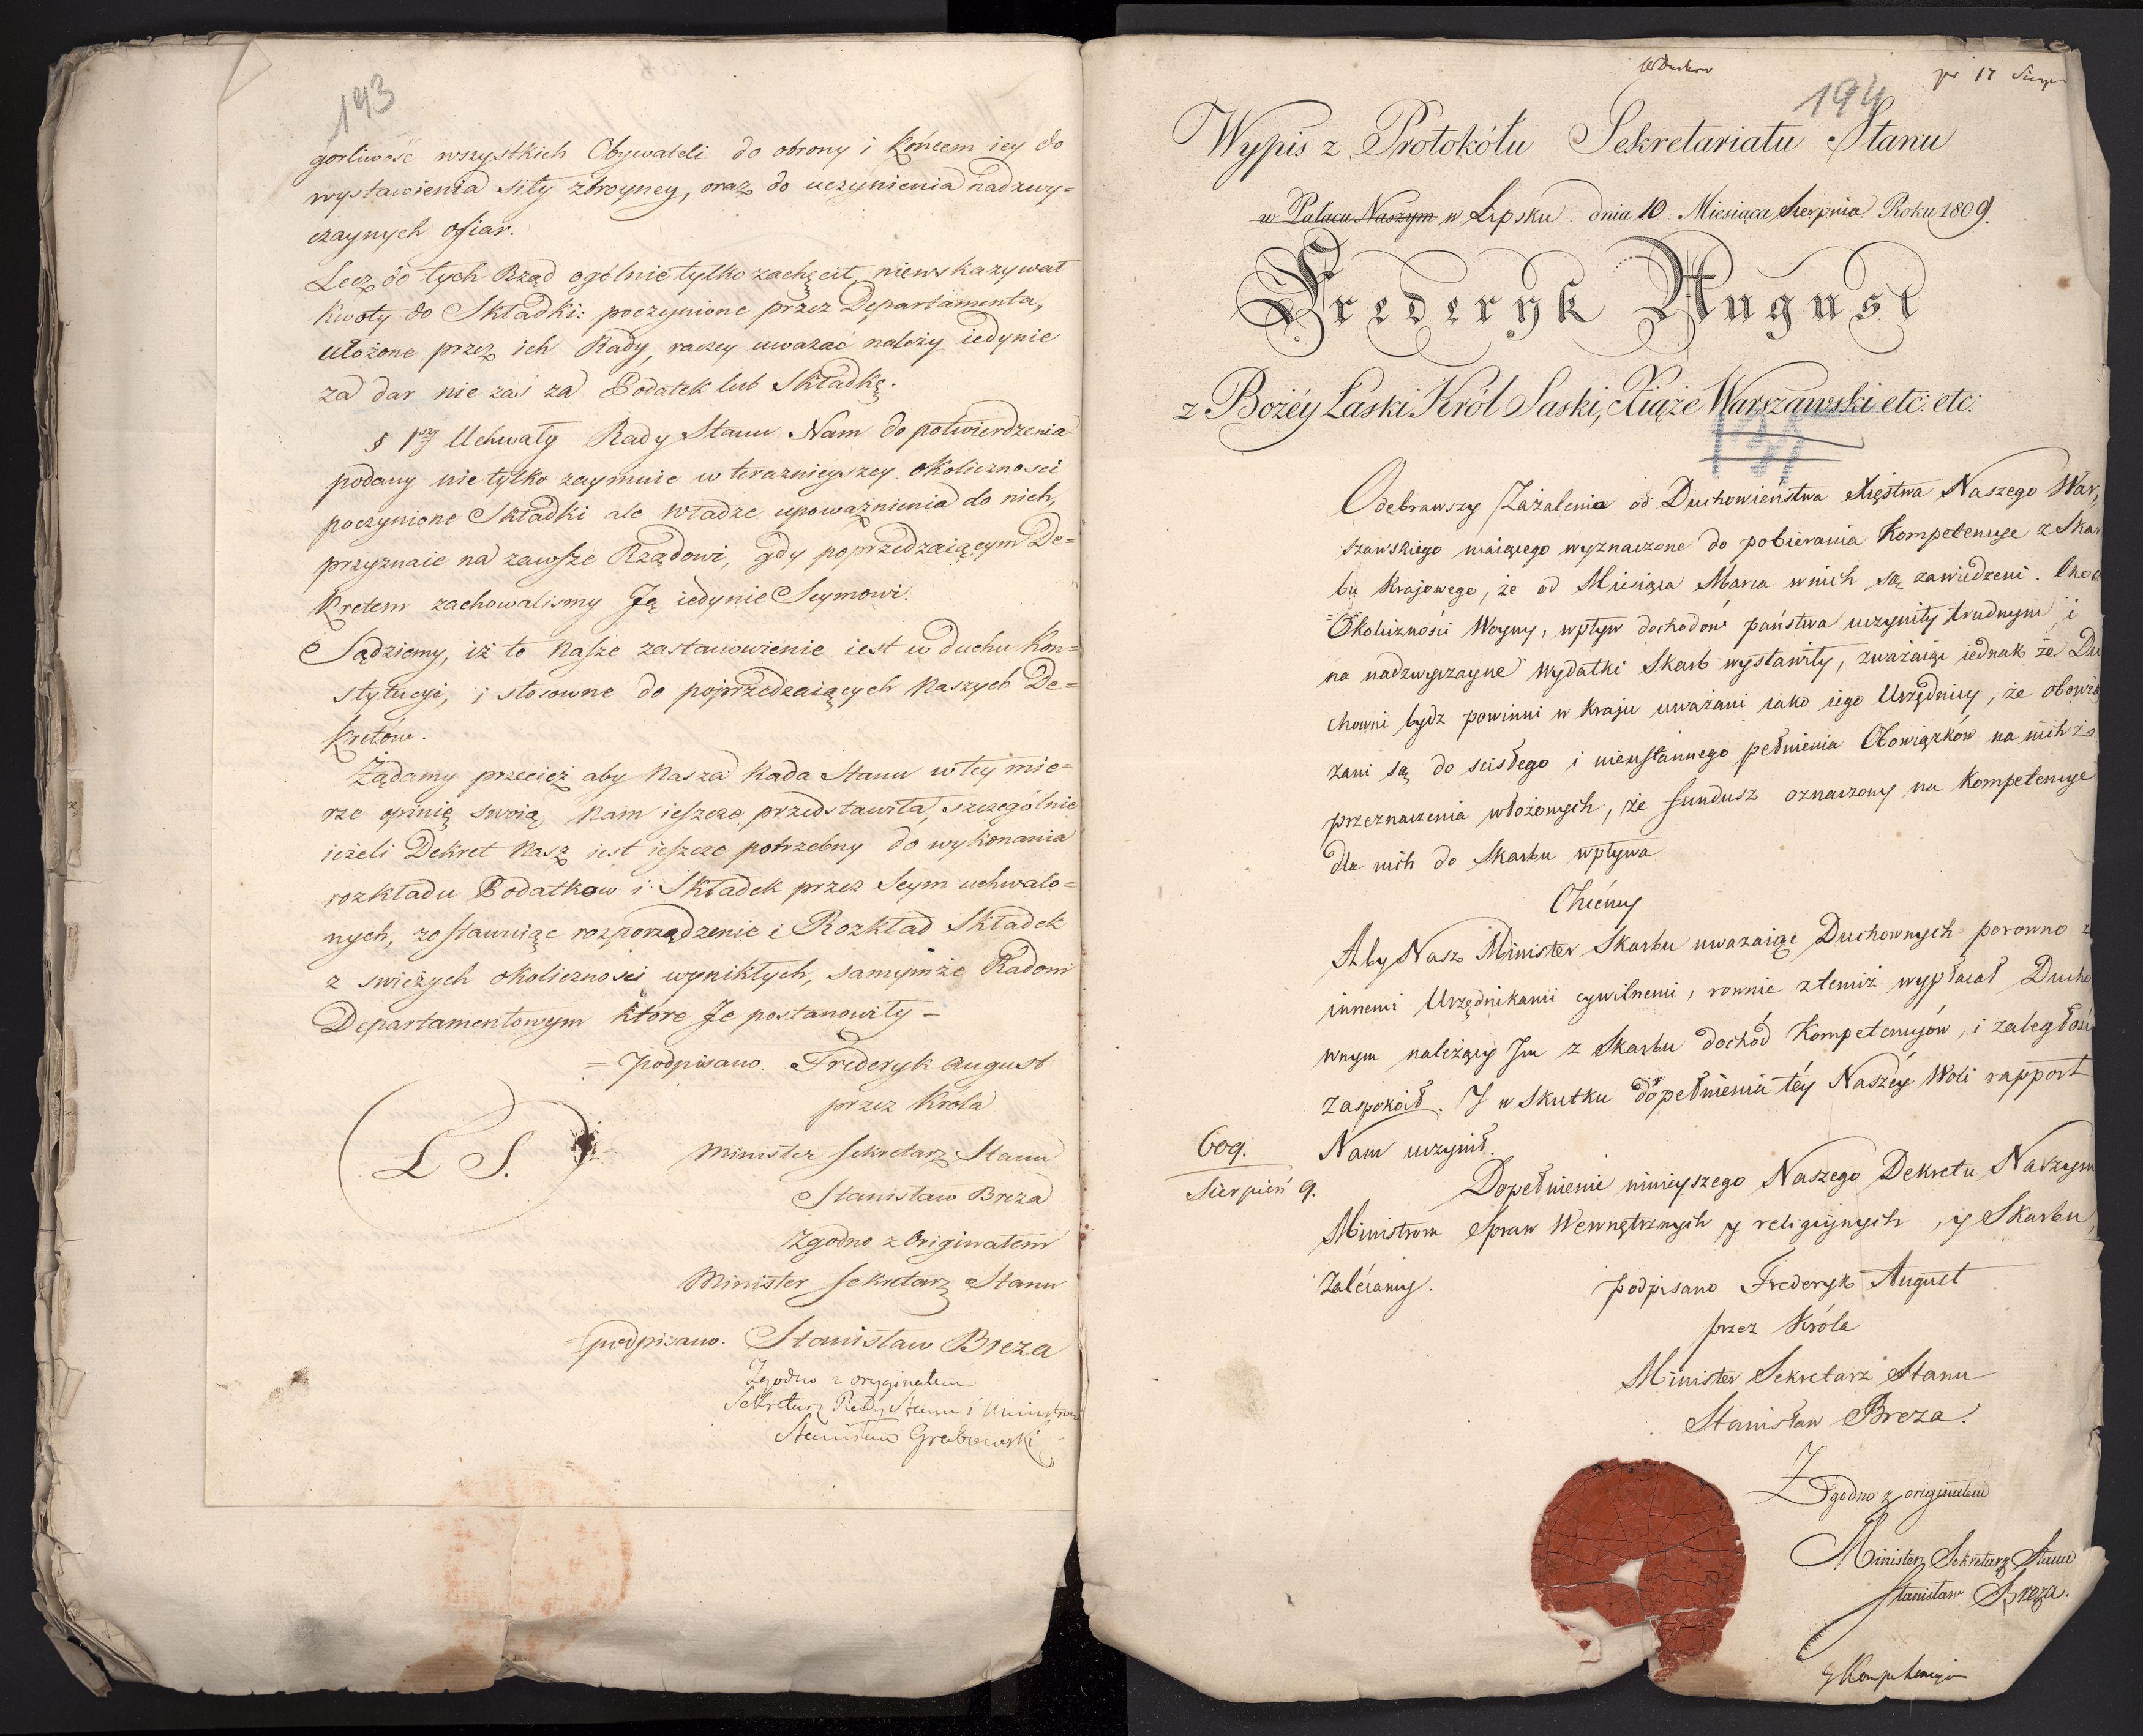 193
gorliwość wszystkich Obywateli do obrony i końcem iey do
wystawienia siły zbroyney, oraz do uczynienia nadzwy=
czaynych ofiar.
Lecz do tych Rząd ogólnie tylko zachęcił, niewskazywał
kwoty do Składki: poczynione przez Departamenta,
ułożone przez ich Rady, raczey uważać należy iedynie
za dar nie zaś za Podatek lub Składkę.
§ 1szy Uchwały Rady Stanu Nam do potwierdzenia
podany nie tylko zaymuie w teraznieyszey okoliczności
poczynione Składki ale władze upoważnienia do nich,
przyznaie na zawsze Rządowi, gdy poprzedzaiącym De=
kretem zachowaliśmy Ją iedynie Seymowi.
Sądziemy, iż to Nasze zastanowienie iest w duchu Kon=
stytucyi, i stosowne do poprzedzaiących Naszych De=
kretów.
Żądamy przecież aby Nasza Rada Stanu w tey mie=
rze opinię swoią Nam ieszcze przedstawiła, szczególnie
ieżeli Dekret Nasz iest ieszcze potrzebny do wykonania
rozkładu Podatkow i Składek przez Seym uchwalo=
nych, zostawuiąc rozporządzenie i Rozkład Składek
z swieżych okoliczności wynikłych, samymże Radom
Departamentowym które Je postanowiły –
= podpisano. Frederyk August
przez Króla
L S.
Minister Sekretarz Stanu
Stanisław Breza
Zgodno z Originałem
Minister Sekretarz Stanu
= podpisano. Stanisław Breza
Zgodno z oryginałem
Sekretarz Rady Stanu i Ministrow
Stanisław Grabowski
pr 17 Sierp
194
Wypis z Protokółu Sekretariatu Stanu
w Pałacu Naszym w Lipsku dnia 10. Miesiąca Sierpnia Roku 1809.
Frederyk August
z Bożéy Łaski Król Saski, Xiąże Warszawski etc: etc:
Odebrawszy Zażalenia od Duchowieństwa Xięstwa Naszego War,
szawskiego maiącego wyznaczone do pobierania Kompetencye z Skar
bu Krajowego, że od Miesiąca Marca w nich są zawiedzeni. Choć
Okoliczności Woyny, wpływ dochodów państwa uczyniły trudnym, i
na nadzwyczayne wydatki Skarb wystawiły, zważaiąc iednak że Du
chowni bydz powinni w kraju uważani iako iego Urzędnicy, że obowią
zani są do scisłego i nieustannego pełnienia Obowiązków na nich z
przeznaczenia włożonych, że fundusz oznaczony na Kompetencye
dla nich do Skarbu wpływa
Chcémy
Aby Nasz Minister Skarbu uważaiąc Duchownych porowno z
innemi Urzędnikami cywilnemi, rownie z temiż wypłacał Ducho
wnym należący Im z Skarbu dochód Kompetencyów, i zaległość
zaspokoił. I w skutku dopełnienia téy Naszéy Woli rapport
Nam uczynił.
609.
Sierpień 9.
Dopełnienie ninieyszego Naszego Dekretu Naszym
Ministrom Spraw Wewnętrznych y religiynych, y Skarbu,
zalécamy.
podpisano Frederyk August
przez Króla
Minister Sekretarz Stanu
Stanisław Breza.
Zgodno z originałem
Minister Sekretarz Stanu
Stanisław Breza.